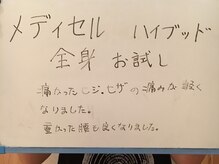 メディセル ハイブッド
全身 お試し
痛かったヒジ、ヒザの痛みが軽く
なりました。
重かった腰も良くなりました。